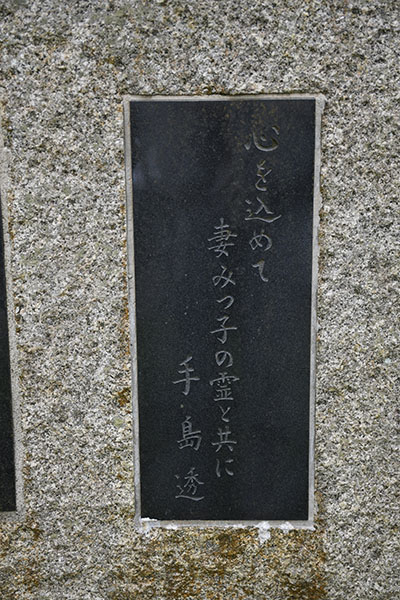 心を込めて
妻みつ子の霊と共に
手島透